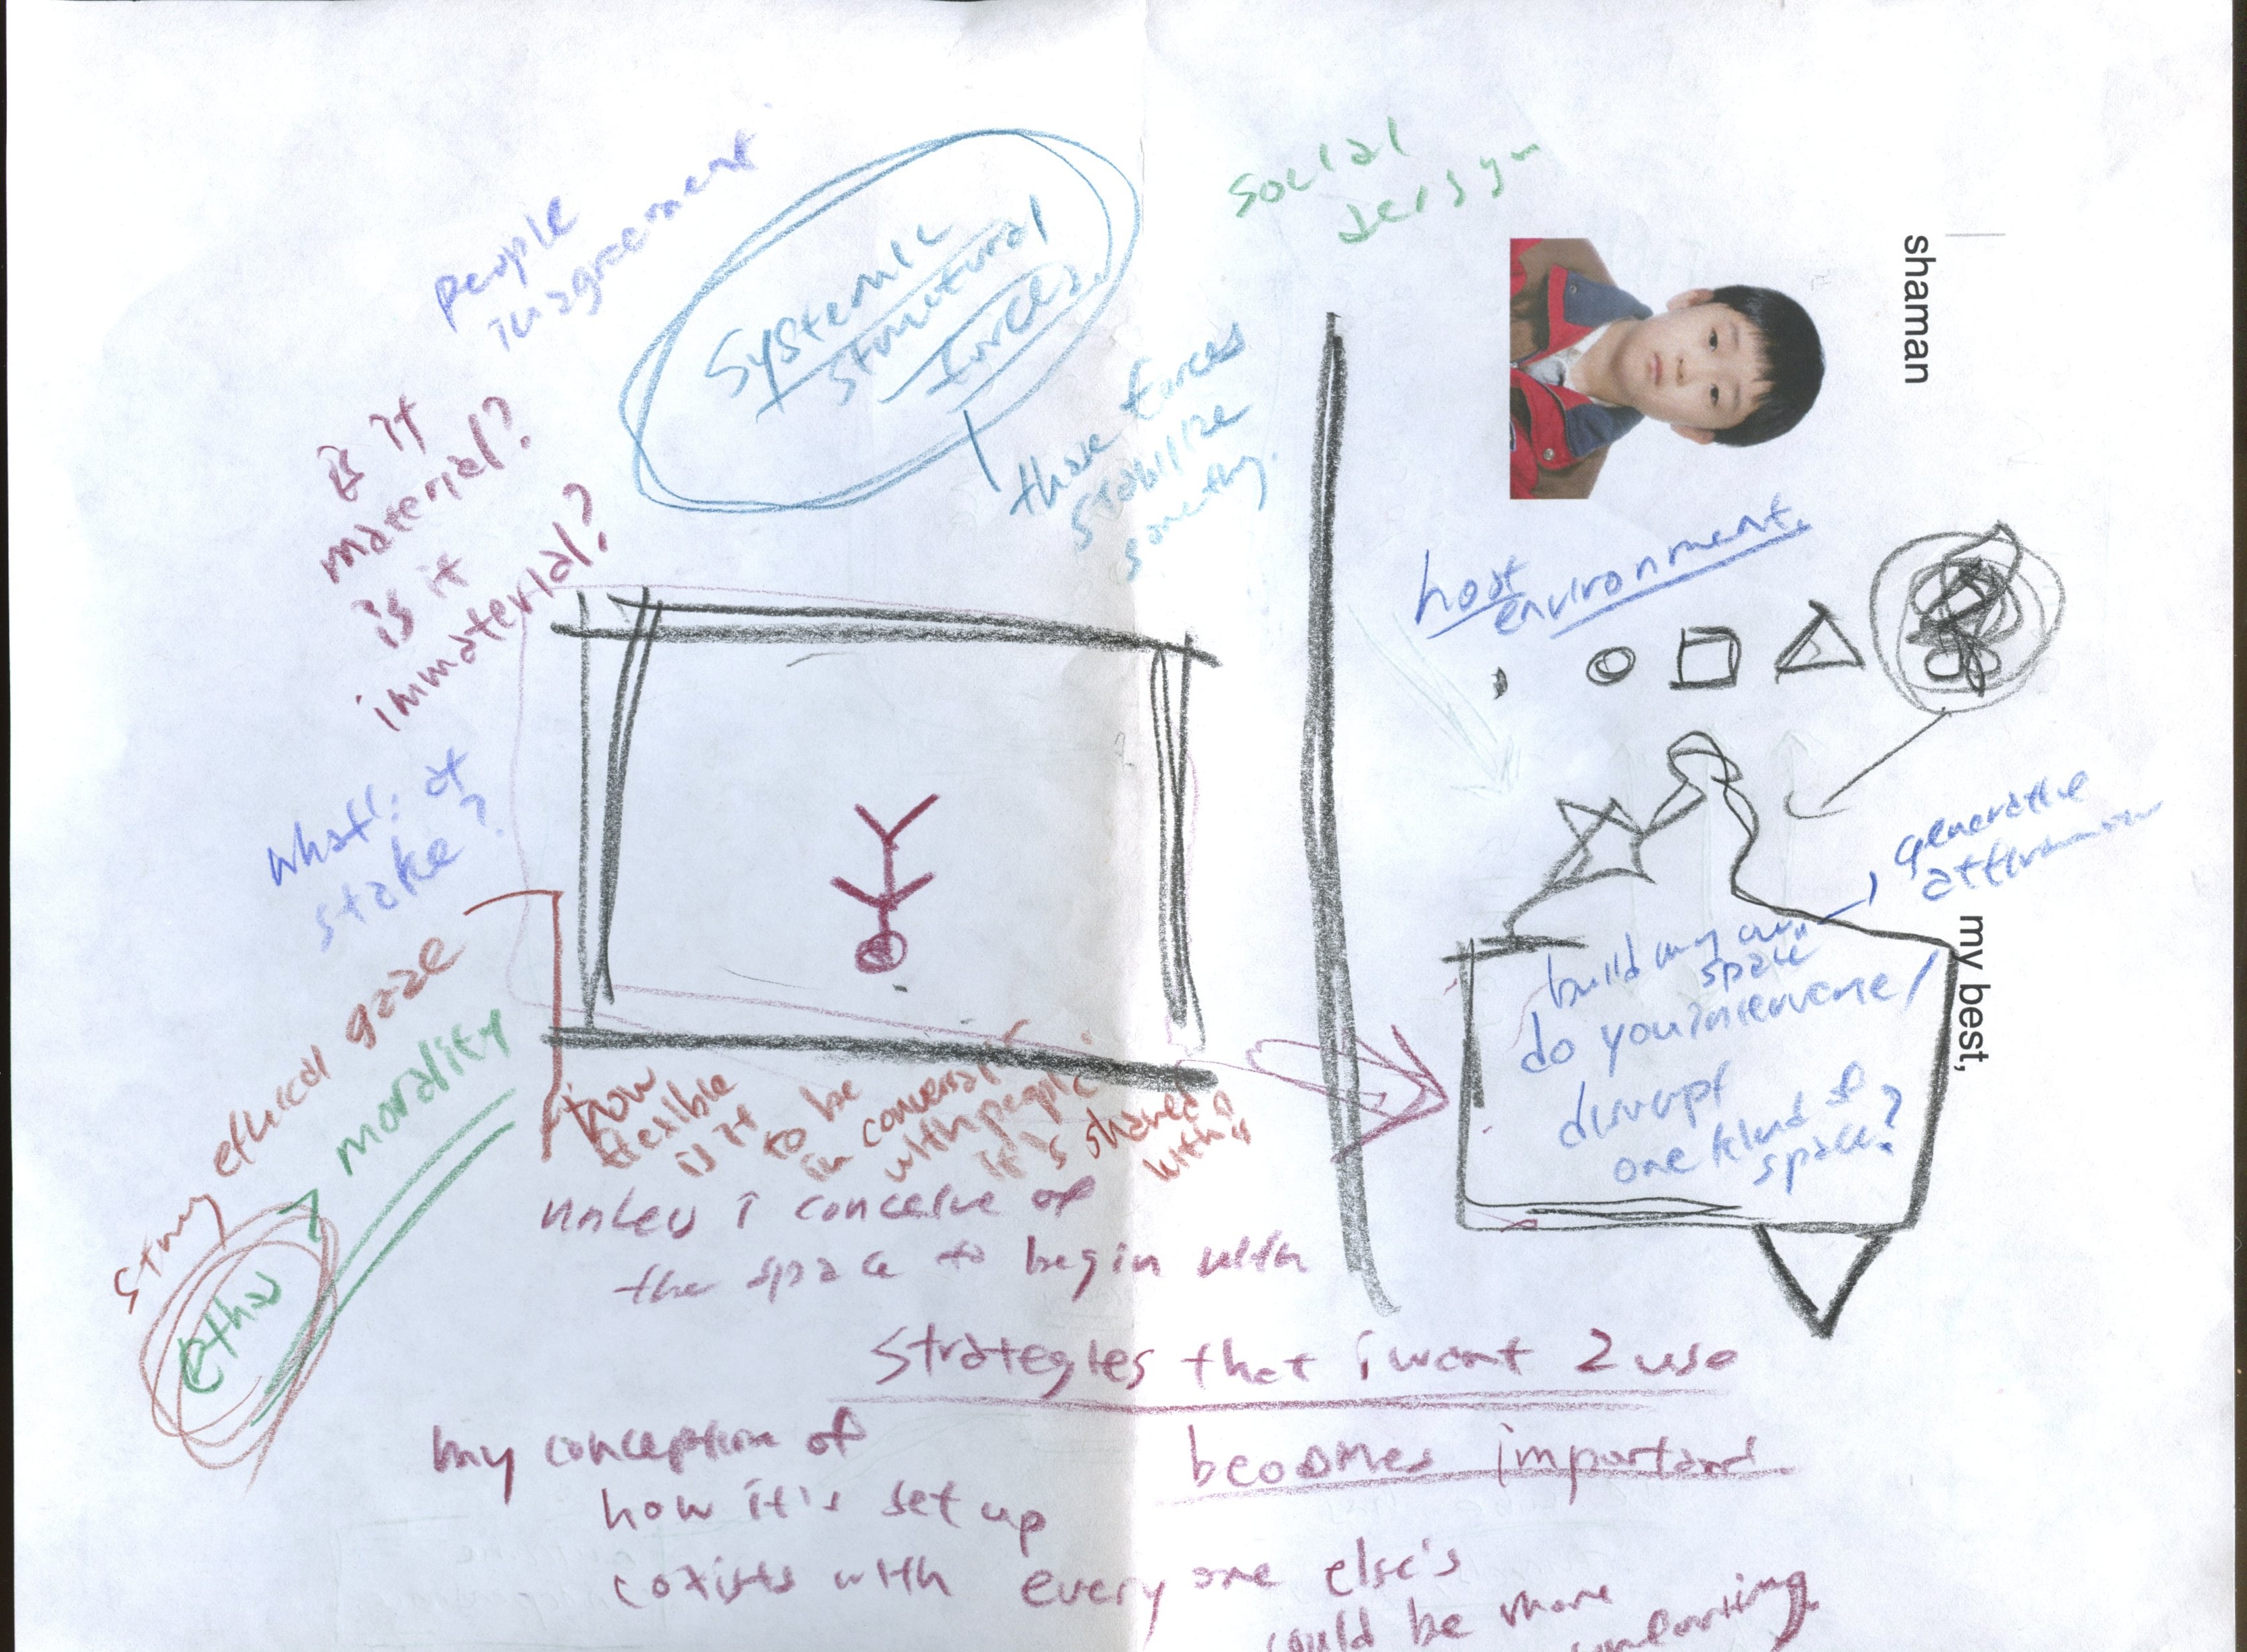 people
in agreement
Systemic
structural
forces.
those forces
stabilize
somethg.
social
design
shaman
is it
material?
is it
immaterial?
what's at
stake?
host
environment
generative
my best,
build my own
space
do you intervene/
disrupt
one kind of
space?
ethical gaze
morality
strong
ethos
how
flexible
is it
to be
in conversat
with people
it is shared
with?
unless i conceive of
the space to begin with
strategies that i want 2 use
becomes important
my conception of
how it's set up
coxists with everyone else's
could be more